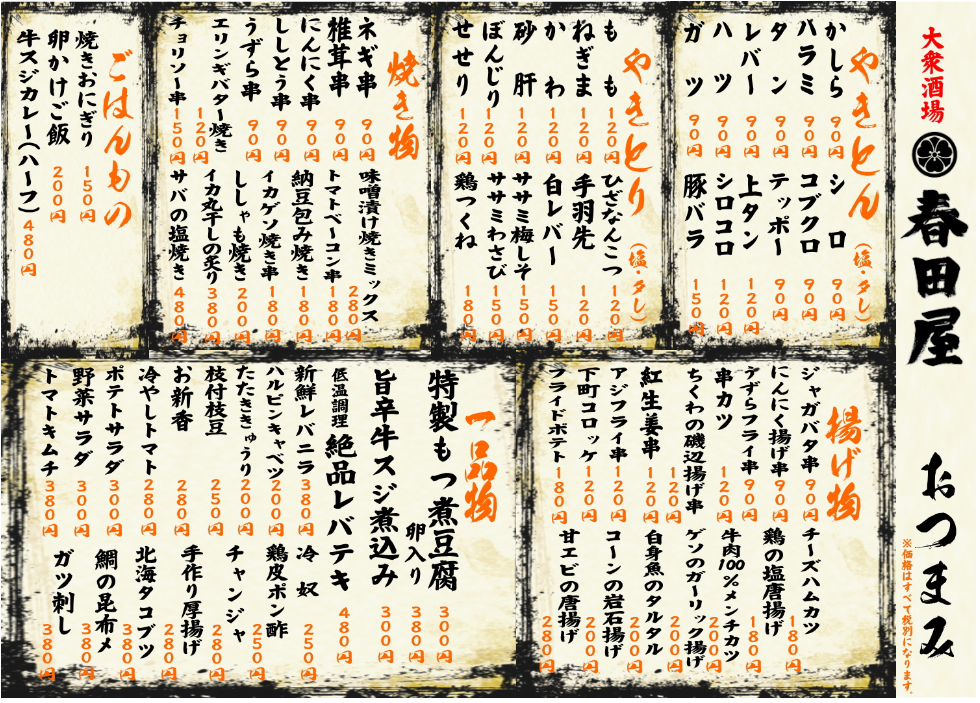 大衆酒場
春田屋
おつまみ
※価格はすべて税別になります。
やきとん(塩・タレ)
かしら 90円
ハラミ 90円
タン 90円
レバー 90円
ハツ 90円
ガツ 90円
シロ 90円
コブクロ 90円
テッポー 90円
上タン 120円
シロコロ 120円
豚バラ 150円
やきとり(塩・タレ)
もも 120円
ねぎま 120円
かわ 120円
砂肝 120円
ぼんじり 120円
せせり 120円
ひざなんこつ 120円
手羽先 120円
白レバー 150円
ササミ梅しそ 150円
ササミわさび 150円
鶏つくね 180円
焼き物
ネギ串 90円
椎茸串 90円
にんにく串 90円
ししとう串 90円
うずら串 90円
エリンギバター焼き 120円
チョリソー串 150円
味噌漬け焼きミックス 280円
トマトベーコン串 180円
納豆包み焼き 180円
イカゲソ焼き串 180円
ししゃも焼き 200円
イカ丸干しの炙り 380円
サバの塩焼き 480円
ごはんもの
焼きおにぎり 150円
卵かけご飯 200円
牛スジカレー(ハーフ) 480円
揚げ物
ジャガバタ串 90円
にんにく揚げ串 90円
うずらフライ串 90円
串カツ 120円
ちくわの磯辺揚げ串 120円
紅生姜串 120円
アジフライ串 120円
下町コロッケ 120円
フライドポテト 180円
チーズハムカツ 180円
鶏の塩唐揚げ 180円
牛肉100%メンチカツ 200円
ゲソのガーリック揚げ 200円
白身魚のタルタル 200円
コーンの岩石揚げ 200円
甘エビの唐揚げ 280円
一品物
特製もつ煮豆腐 300円
卵入り 380円
旨辛牛スジ煮込み 300円
低温調理 絶品レバテキ 480円
新鮮レバニラ 380円
ハルピンキャベツ 200円
たたききゅうり 200円
枝付枝豆 250円
お新香 280円
冷やしトマト 280円
ポテトサラダ 300円
野菜サラダ 300円
トマトキムチ 380円
冷奴 250円
鶏皮ポン酢 250円
チャンジャ 280円
手作り厚揚げ 280円
北海タコブツ 380円
鯛の昆布〆 380円
ガツ刺し 380円